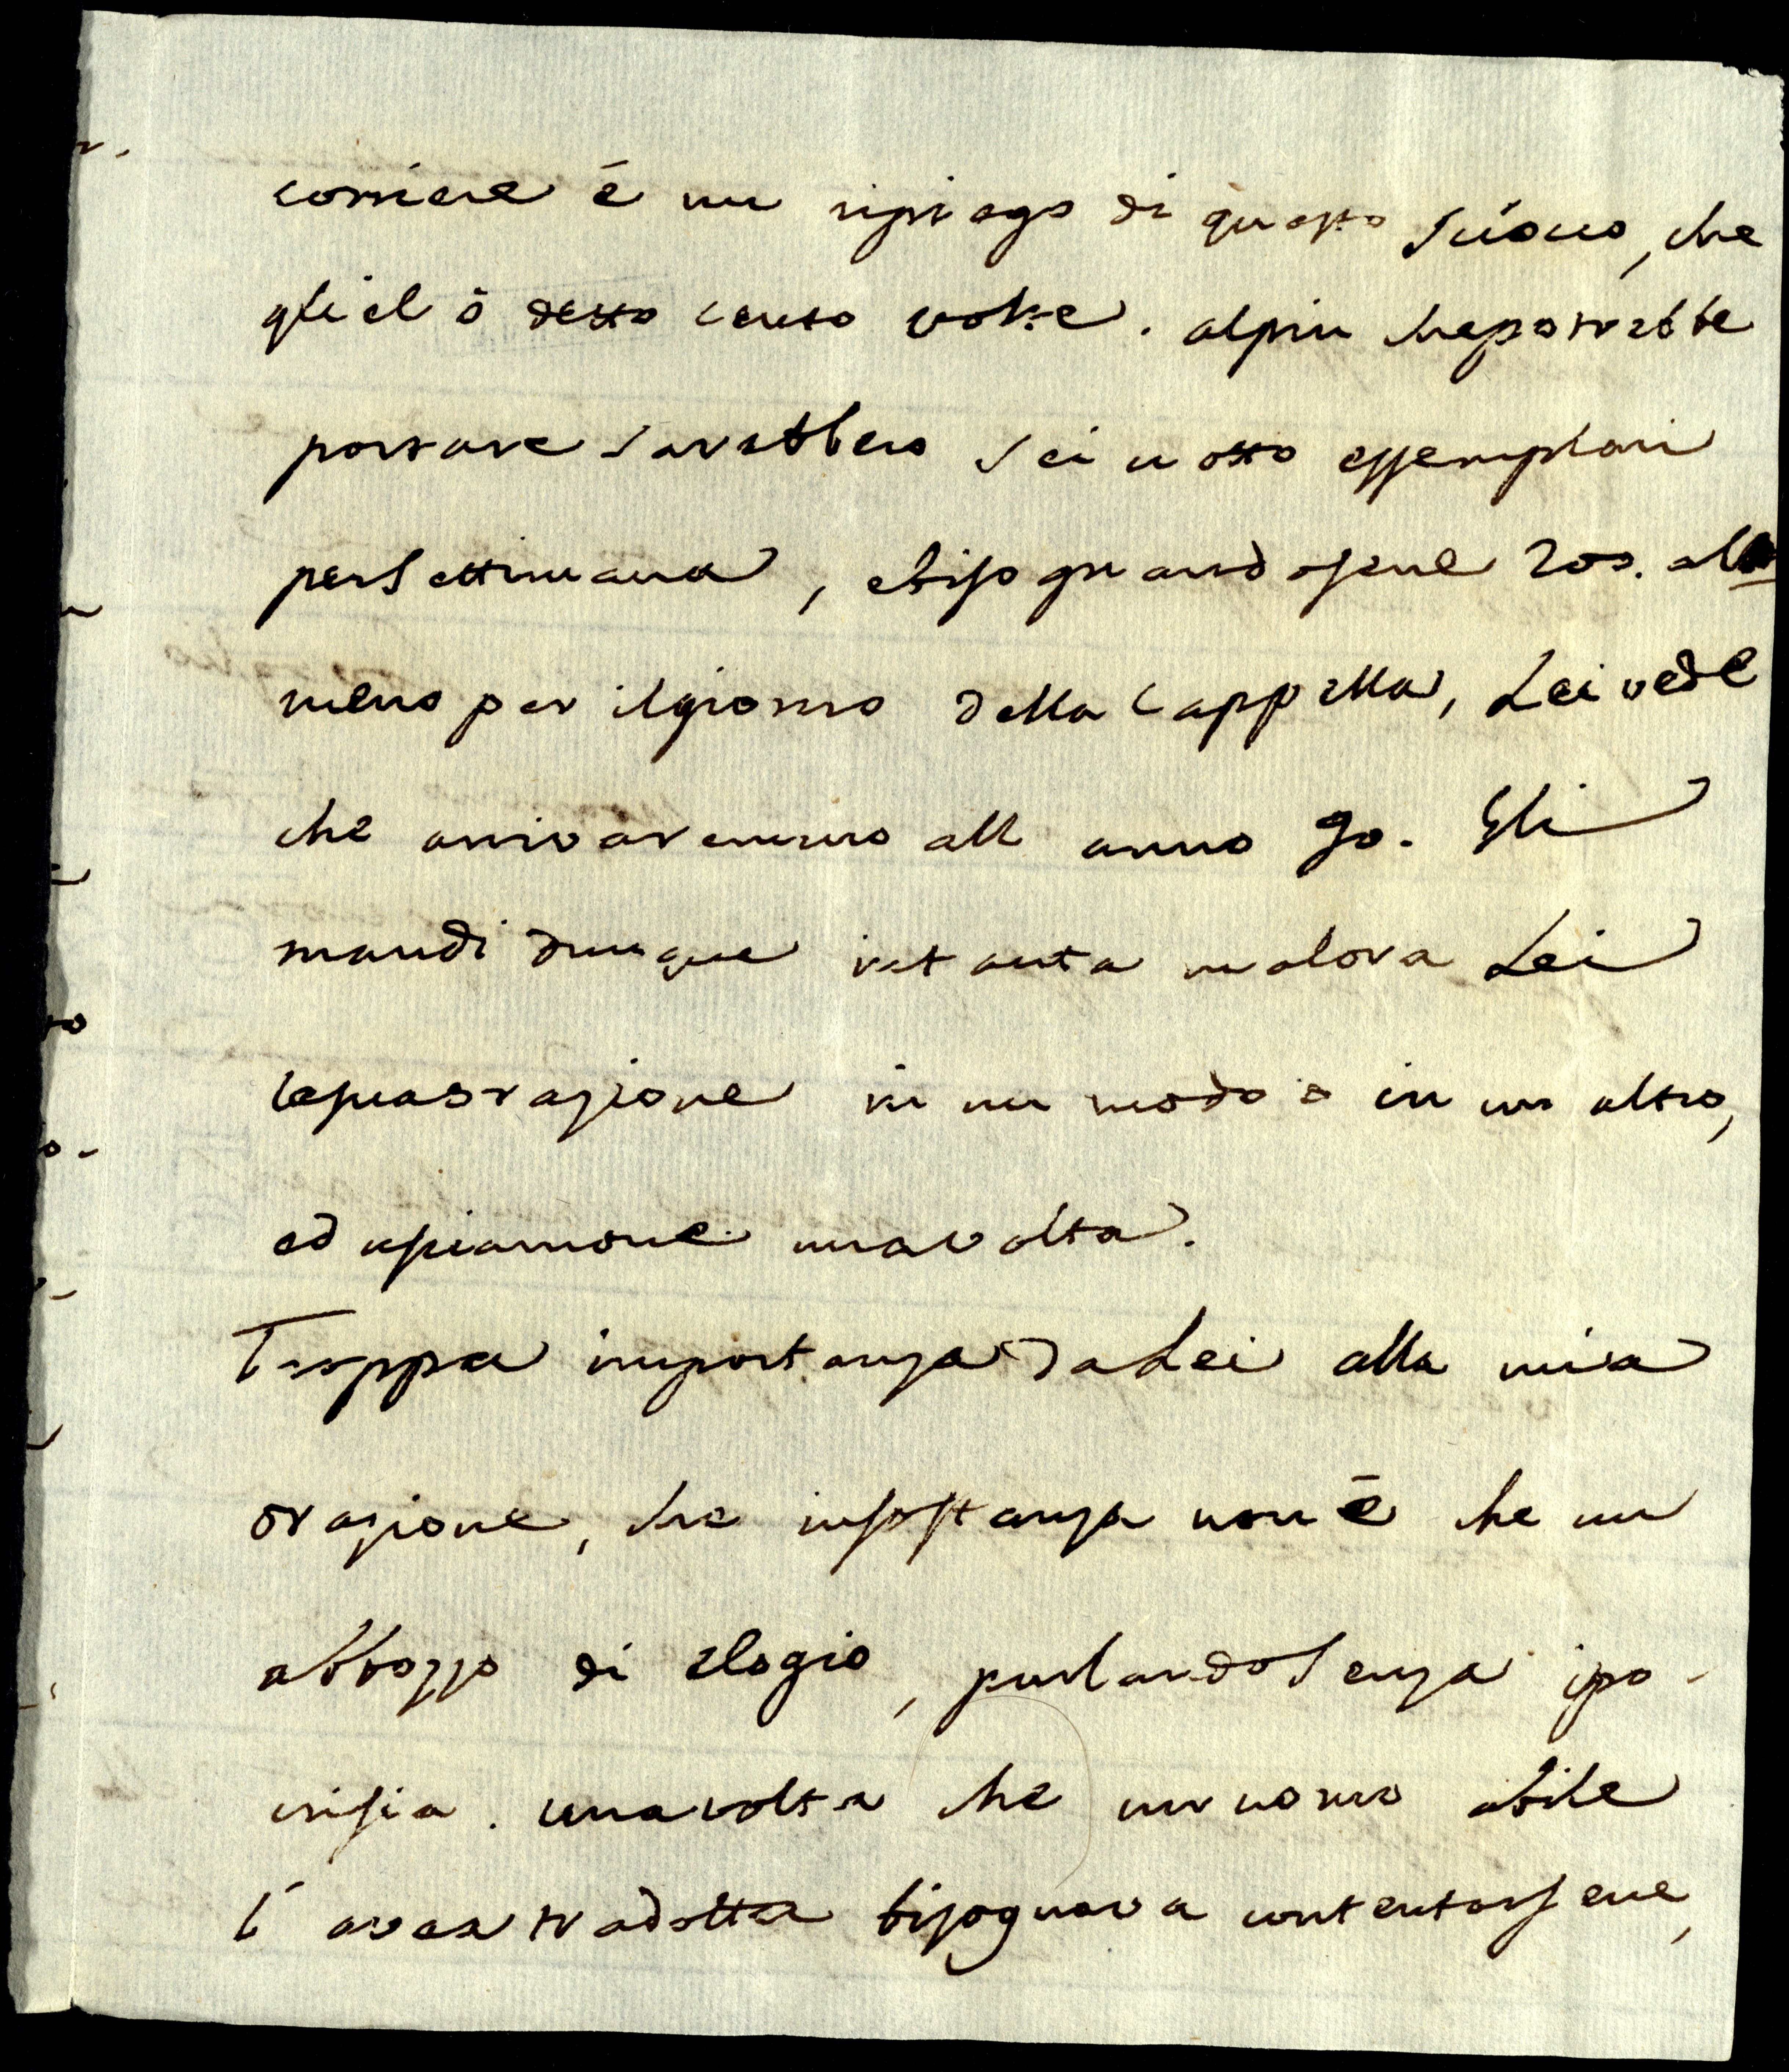 corriere é un ripiego di questo Suóno, che
gliel ó detto cento volte. alpiu chepotrebbe
portare sarebbero sei u otto essemplari
persettimana, ebisognandosene 200. all
meno per ilgiorno della Cappella, Lei vede
che arrivaremmo all anno 90. Gli
mandi dunque intanta malora Lei
lasua orazione in un modo o in un altro,
ed usciamone unavolta.
Troppa importanza dà Lei alla mia
orazione, che insostanza non é che un
abbozzo di elogio, parlandosenza ipo-
crisia. unavolta che un uomo abile
l'avea tradotta bisognava contentarsene,